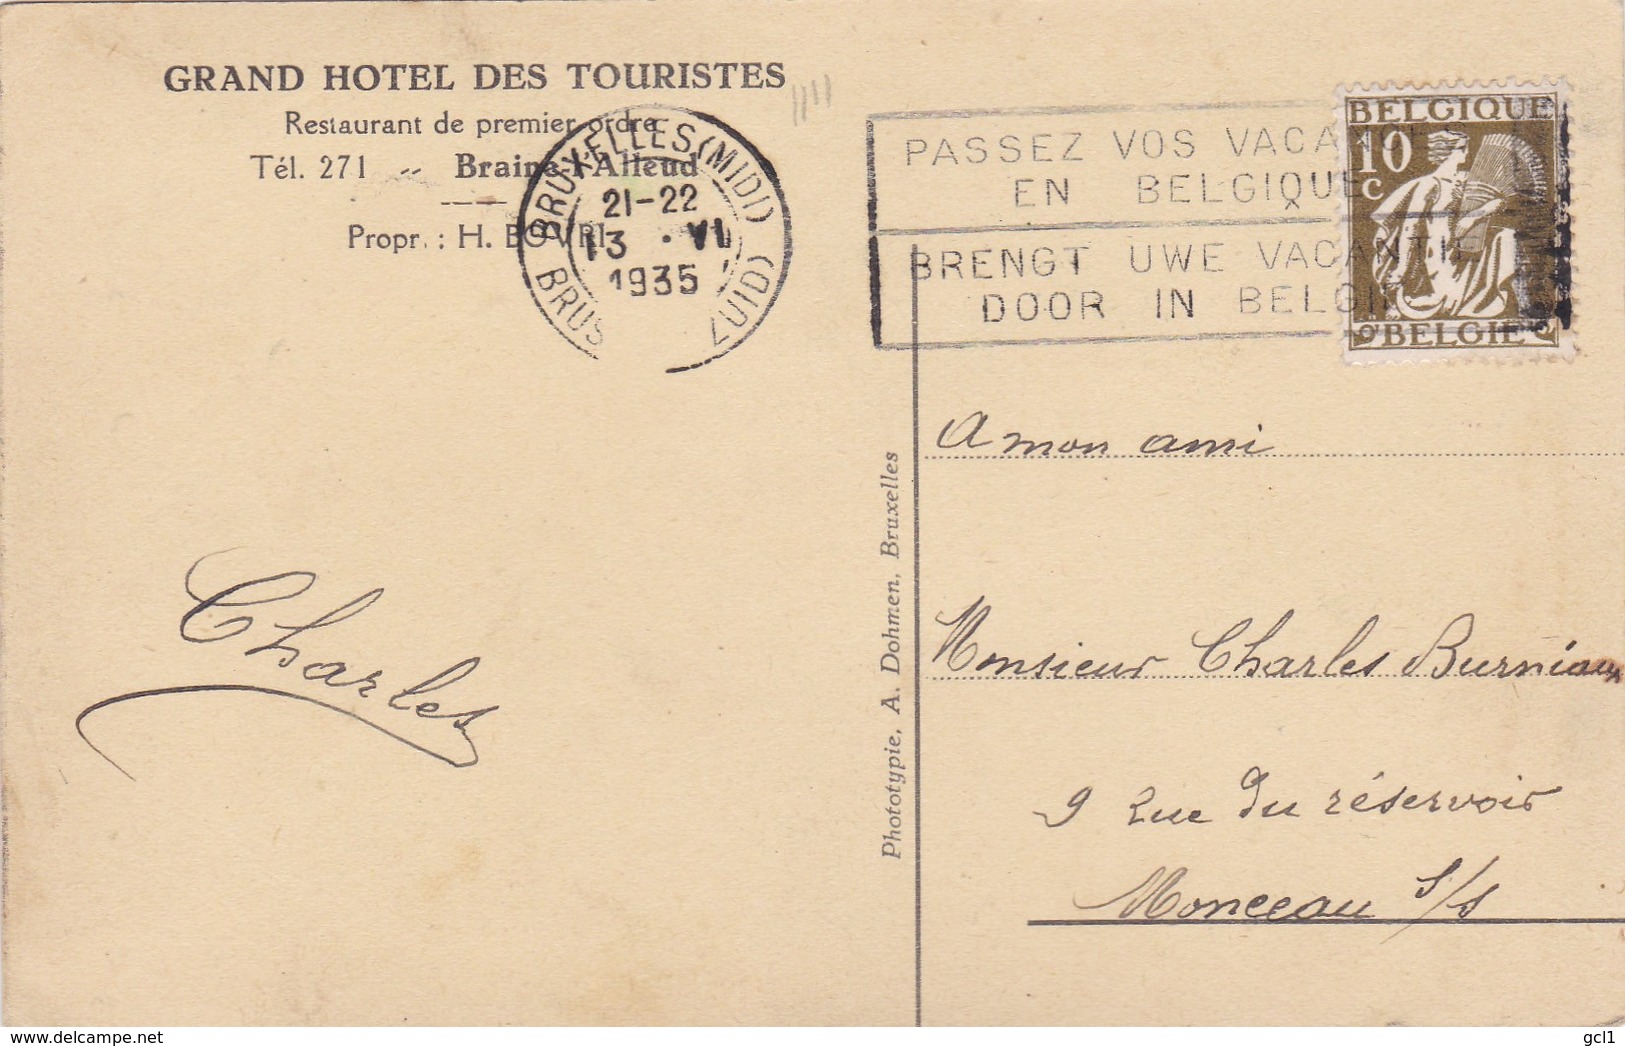 GRAND HOTEL DES TOURISTES
Restaurant de premier ordre
Tél. 271 -- Braine-l'Alleud
Propr. : H. BOVRI
BRUXELLES (MIDI)
21-22
13 · VI
1935
BRUS ZUID)
PASSEZ VOS VACANCES
EN BELGIQUE
BRENGT UWE VACANTIE
DOOR IN BELGIE
BELGIQUE
10
C
BELGIË
A mon ami
Monsieur Charles Burniaux
9 Rue du réservoir
Monceau s/s
Charles
Phototypie, A. Dohmen, Bruxelles
www.delcampe.net
gcl1